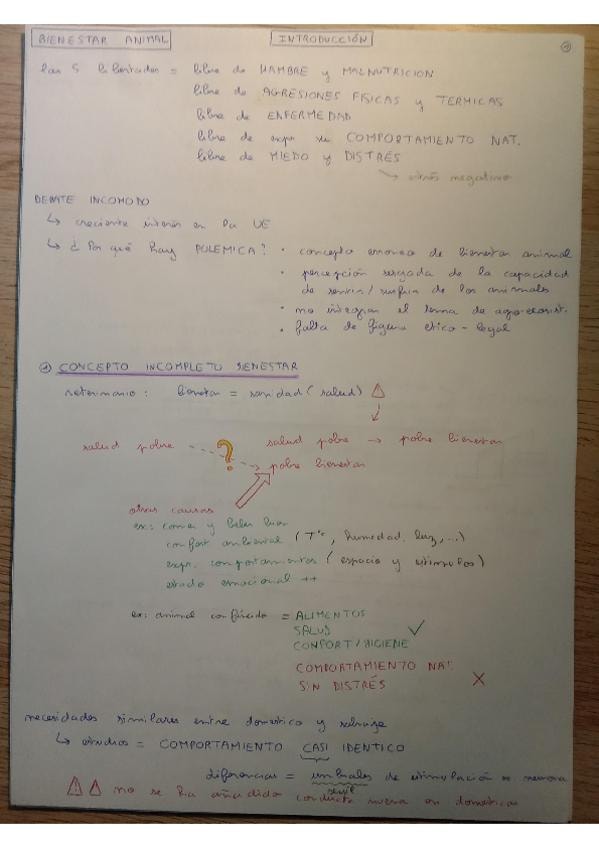 BIENESTAR ANIMAL INTRODUCCIÓN 1
las 5 libertades = libre de HAMBRE y MALNUTRICION
libre de AGRESIONES FISICAS y TERMICAS
libre de ENFERMEDAD
libre de expr su COMPORTAMIENTO NAT.
libre de MIEDO y DISTRÉS
↳ estrés negativo
DEBATE INCOMODO
↳ creciente interés en la UE
↳ ¿ Por qué hay POLEMICA? • concepto erroneo de bienestar animal
• percepción sesgada de la capacidad
de sentir/sufrir de los animales
• no integran el tema de agro-ecosist.
• falta de figura etico-legal
1 CONCEPTO INCOMPLETO BIENESTAR
veterinario : bienestar = sanidad (salud)
salud pobre ? salud pobre → pobre bienestar
pobre bienestar
otras causas
ex: comer y beber bien
confort ambiental (Tª, humedad, luz,...)
expr. comportamientos (espacio y estimulos)
estado emocional ++
ex: animal confinado = ALIMENTOS
SALUD ✓
CONFORT/HIGIENE
COMPORTAMIENTO NAT.
SIN DISTRÉS X
necesidades similares entre domestico y salvaje
↳ estudios = COMPORTAMIENTO CASI IDENTICO
diferencias = umbrales de estimulación se
no se ha añadido conducta nueva en domesticos